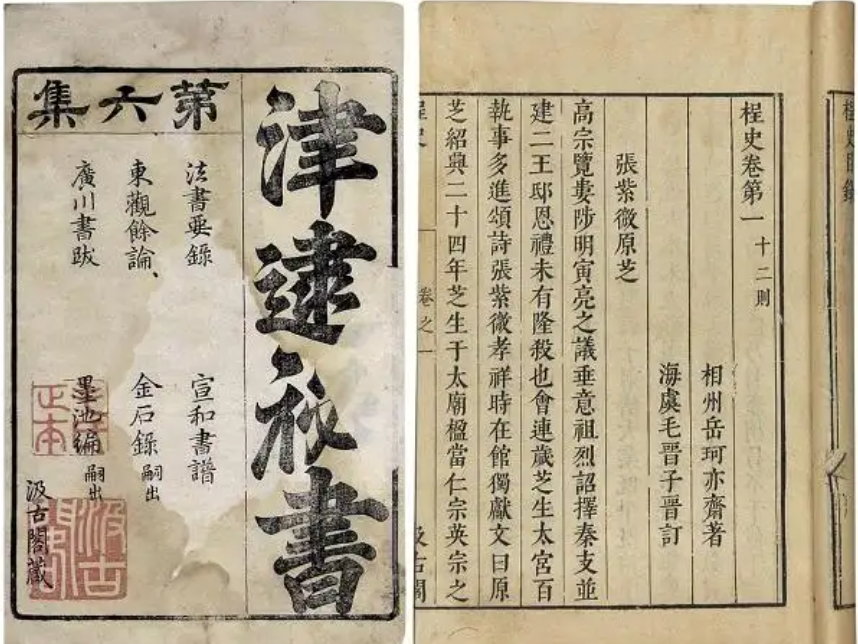 津逮祕書
第六集
法書要錄
宣和書譜
東觀餘論、
金石錄 嗣出
廣川書跋
墨池編 嗣出
汲古閣藏
正本
汲古閣
桯史目錄
桯史卷第一 十二則
相州岳珂亦齋著
海虞毛晉子晉訂
張紫微原芝
高宗覽婁陟明寅亮之議垂意祖烈詔擇秦支並
建二王邸恩禮未有隆殺也會連歲芝生太宮百
執事多進頌詩張紫微孝祥時在館獨獻文曰原
芝紹興二十四年芝生于太廟楹當仁宗英宗之
桯史 卷之一 汲古閣